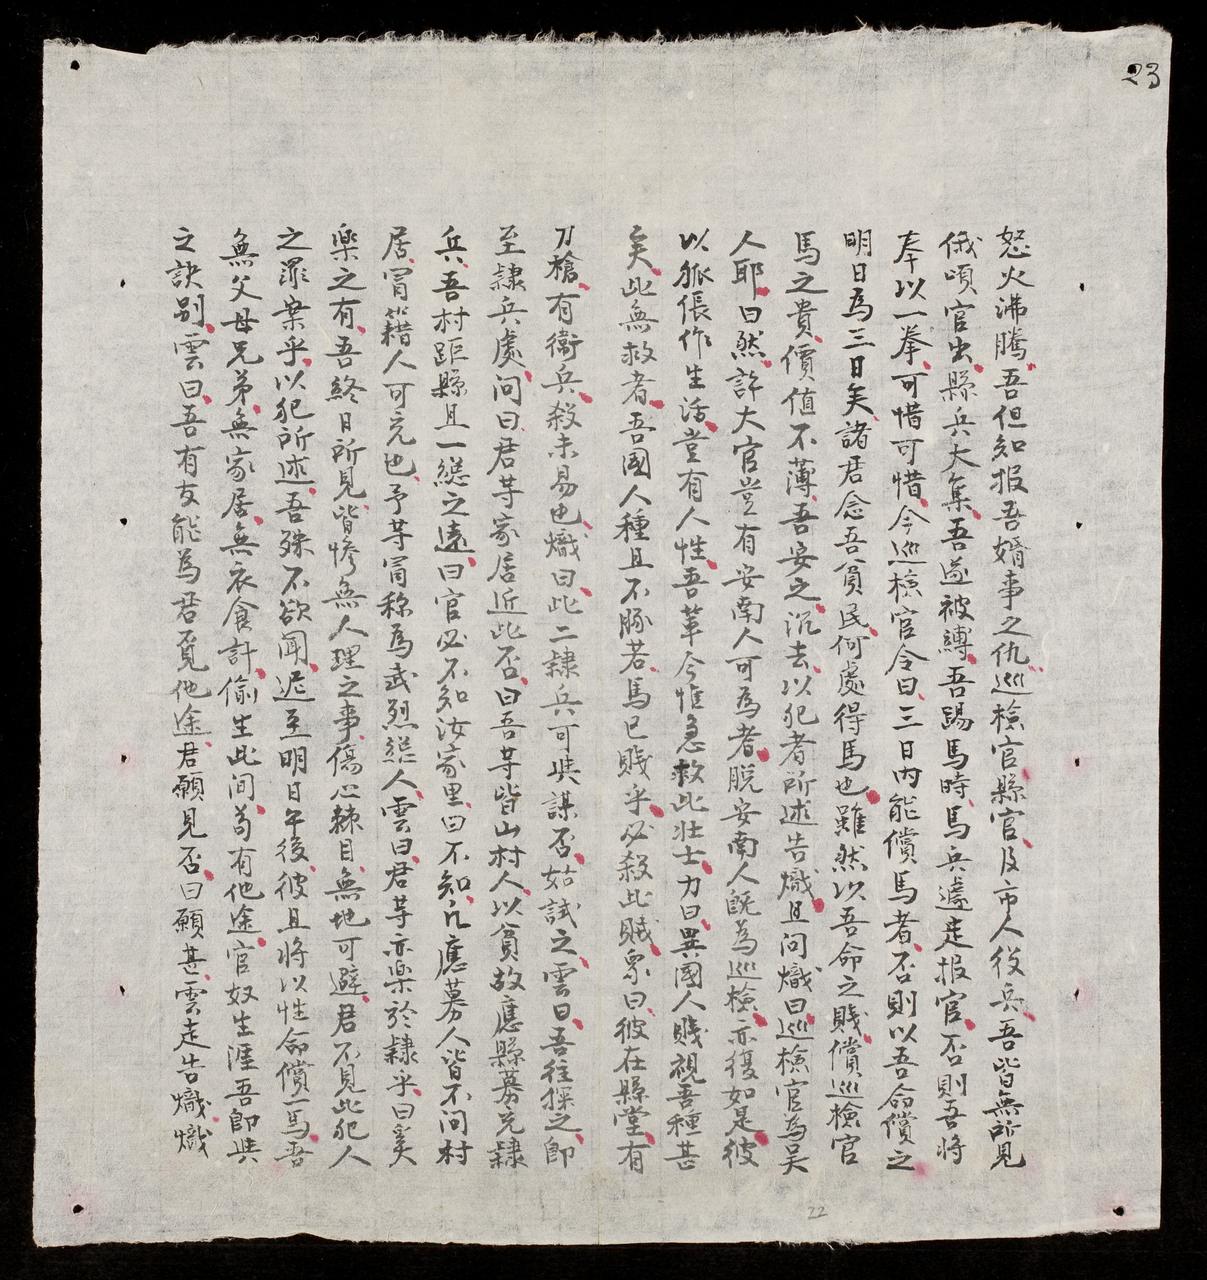 23
怒火沸騰吾但知报吾婿事之仇巡檢官縣官及市人役兵吾皆無所見
俄頃官出縣兵大集吾遂被縛吾踢馬時馬兵遽走报官否則吾將
奉以一拳可惜可惜今巡檢官令曰三日內能償馬者否則以吾命償之
明日為三日矣諸君念吾貧民何處得馬也雖然以吾命之賤償巡檢官
馬之貴價值不薄吾安之沉去以犯者所述告熾且问熾曰巡檢官為吴
人耶曰然許大官豈有安南人可為者脱安南人既為巡檢亦復如是彼
以脈倀作生活豈有人性吾輩今惟急救此壮士力曰異國人賤視吾種甚
矣此無救者吾國人種且不豚若馬已賤乎必殺此賊眾曰彼在縣堂有
刀槍有衛兵殺未易也熾曰此二隸兵可與謀否姑試之雲曰吾往探之即
至隸兵處问曰君等家居近此否曰吾等皆山村人以貧故應縣募充隸
兵吾村距縣且一總之遠曰官必不知汝家里曰不知凡應募人皆不问村
居冒籍人可充也予等冒称為武烈總人雲曰君等亦樂於隸乎曰奚
樂之有吾終日所見皆慘無人理之事傷心棘目無地可避君不見此犯人
之罪案乎以犯所述吾殊不欲闻泥至明日午後彼且将以性命償一馬吾
無父母兄弟無家居無衣食計偷生此间苟有他途官奴生涯吾即與
之訣别雲曰吾有友能為君覓他途君願見否曰願甚雲走告熾熾
22